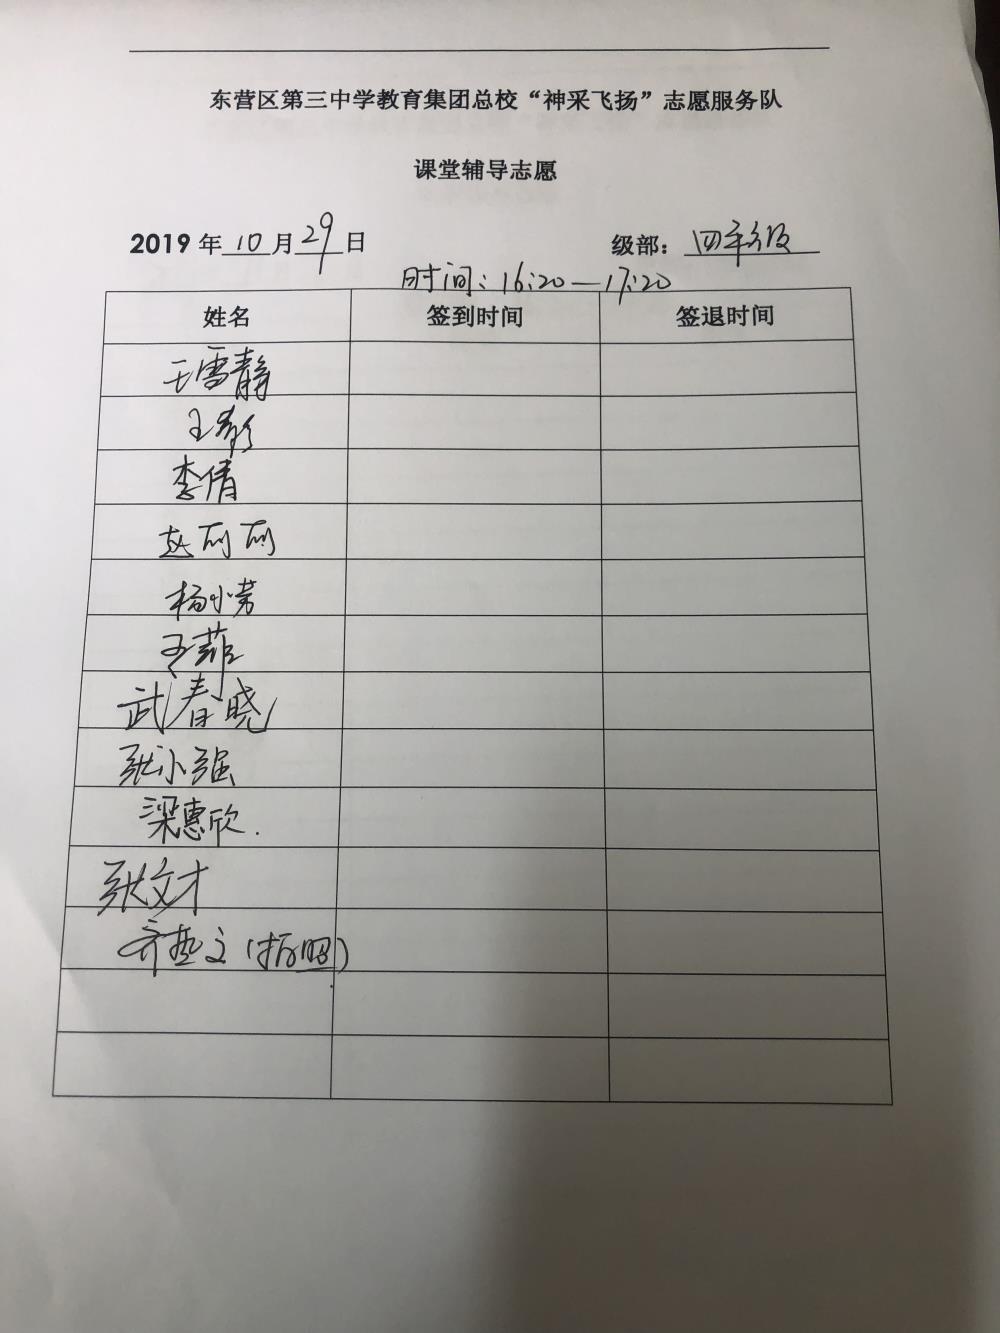 东营区第三中学教育集团总校“神采飞扬”志愿服务队
课堂辅导志愿
2019年10月29日 级部：四年级
时间：16:20—17:20
姓名 签到时间 签退时间
王雪静
王彩
李倩
赵丽丽
杨小芳
王菲
武春晓
张小强
梁惠欣.
张文才
齐艳文（拍照）